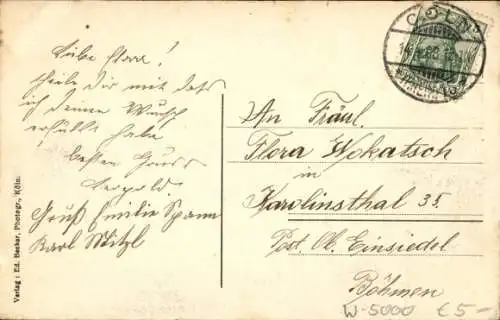 Liebe Flora!
theile Dir mit dass
ich deinen Wunsch
erfüllt habe
besten Gruss
Leopold
Gruß Emilie Spann
Karl Mitzl
An Fräul.
Flora Wokatsch
in
Karolinsthal 35.
Post Ob. Einsiedel
Böhmen
W-5000 £5-
CÖLN
Verlag: Ed. Becker, Photogr., Köln.